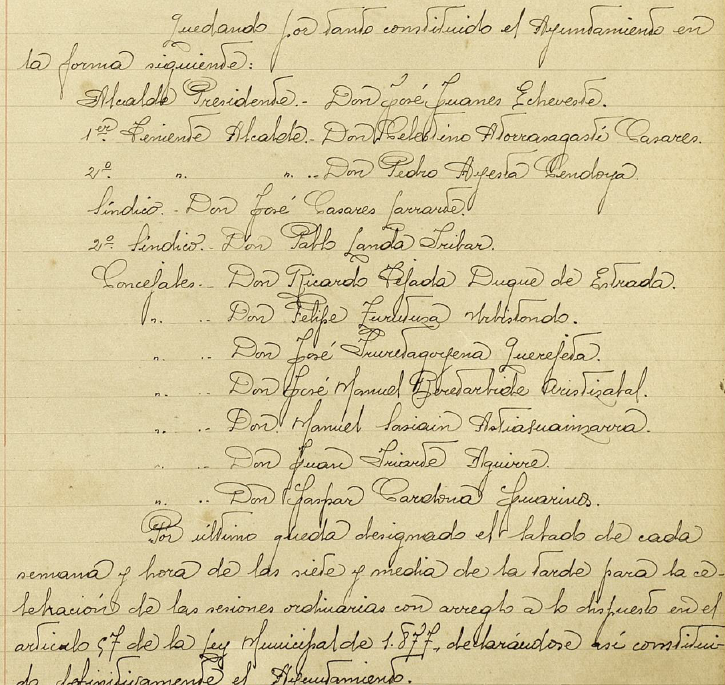 Quedando por tanto constituido el Ayuntamiento en
la forma siguiente:
Alcalde Presidente.- Don José Juanes Echeveste.
1er Teniente Alcalde.- Don Celestino Atorrasagasti Casares.
2º. " " .. Don Pedro Ayesta Cendoya.
Síndico.- Don José Casares Larrarte.
2º Síndico.- Don Pablo Landa Iribar.
Concejales.- Don Ricardo Tejada Duque de Estrada.
" .. Don Felipe Zurutuza Urbistondo.
" .. Don José Iruretagoyena Querejeta.
" .. Don José Manuel Aristizabal.
" .. Don Manuel Sasiain Astiasuainzarra.
" .. Don Juan Iriarte Aguirre.
" .. Don Gaspar Cardona Juarinos.
Por último queda designado el Sabado de cada
semana y hora de las siete y media de la tarde para la ce-
lebración de las sesiones ordinarias con arreglo a lo dispuesto en el
artículo 57 de la Ley Municipal de 1.877, declarándose así constitui-
do definitivamente el Ayuntamiento.